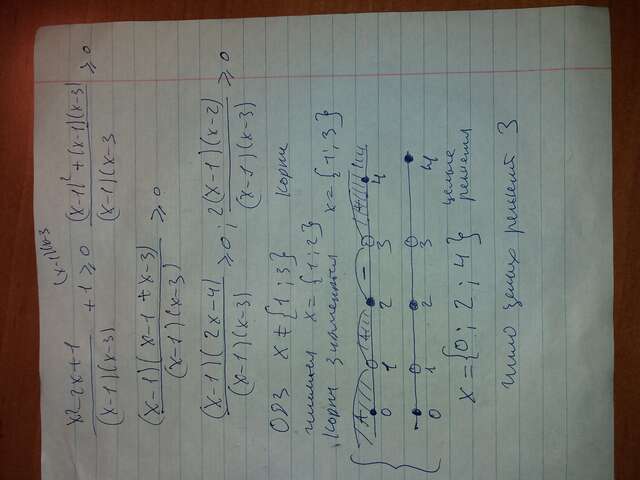 (x-1)(x-3
x²-2x+1 / (x-1)(x-3) + 1 ⩾ 0   (x-1)² + (x-1)(x-3) / (x-1)(x-3 ⩾ 0
(x-1)(x-1+x-3) / (x-1)(x-3) ⩾ 0
(x-1)(2x-4) / (x-1)(x-3) ⩾ 0 ; 2(x-1)(x-2) / (x-1)(x-3) ⩾ 0
ОДЗ x ≠ {1 ; 3} Корни
числителя x = {1 ; 2}
Корни знаменателя x = {1 ; 3}
+ + - +
0 1 2 3 4
0 1 2 3 4
x = {0 ; 2 ; 4} целые
решения
число целых решений 3